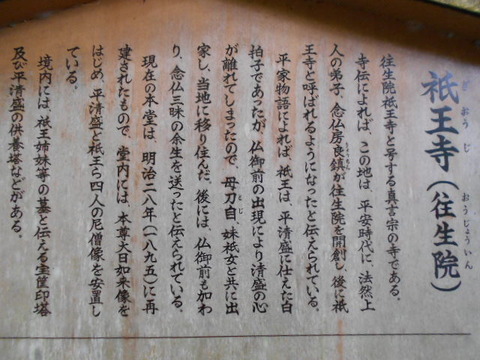 祇王寺(往生院)
ぎおうじ
おうじょういん
往生院祇王寺と号する真言宗の寺である。
寺伝によれば、この地は、平安時代に、法然上
人の弟子、念仏房良鎮が往生院を開創し、後に祇
りょうちん
王寺と呼ばれるようになったと伝えられている。
平家物語によれば、祇王は、平清盛に仕えた白
拍子であったが、仏御前の出現により清盛の心
が離れてしまったので、母刀自、妹祇女と共に出
とじ
家し、当地に移り住んだ。後には、仏御前も加わ
り、念仏三昧の余生を送ったと伝えられている。
現在の本堂は、明治二八年(一八九五)に再
建されたもので、堂内には、本尊大日如来像を
はじめ、平清盛と祇王ら四人の尼僧像を安置し
ている。
境内には、祇王姉妹等の墓と伝える宝筐印塔
及び平清盛の供養塔などがある。